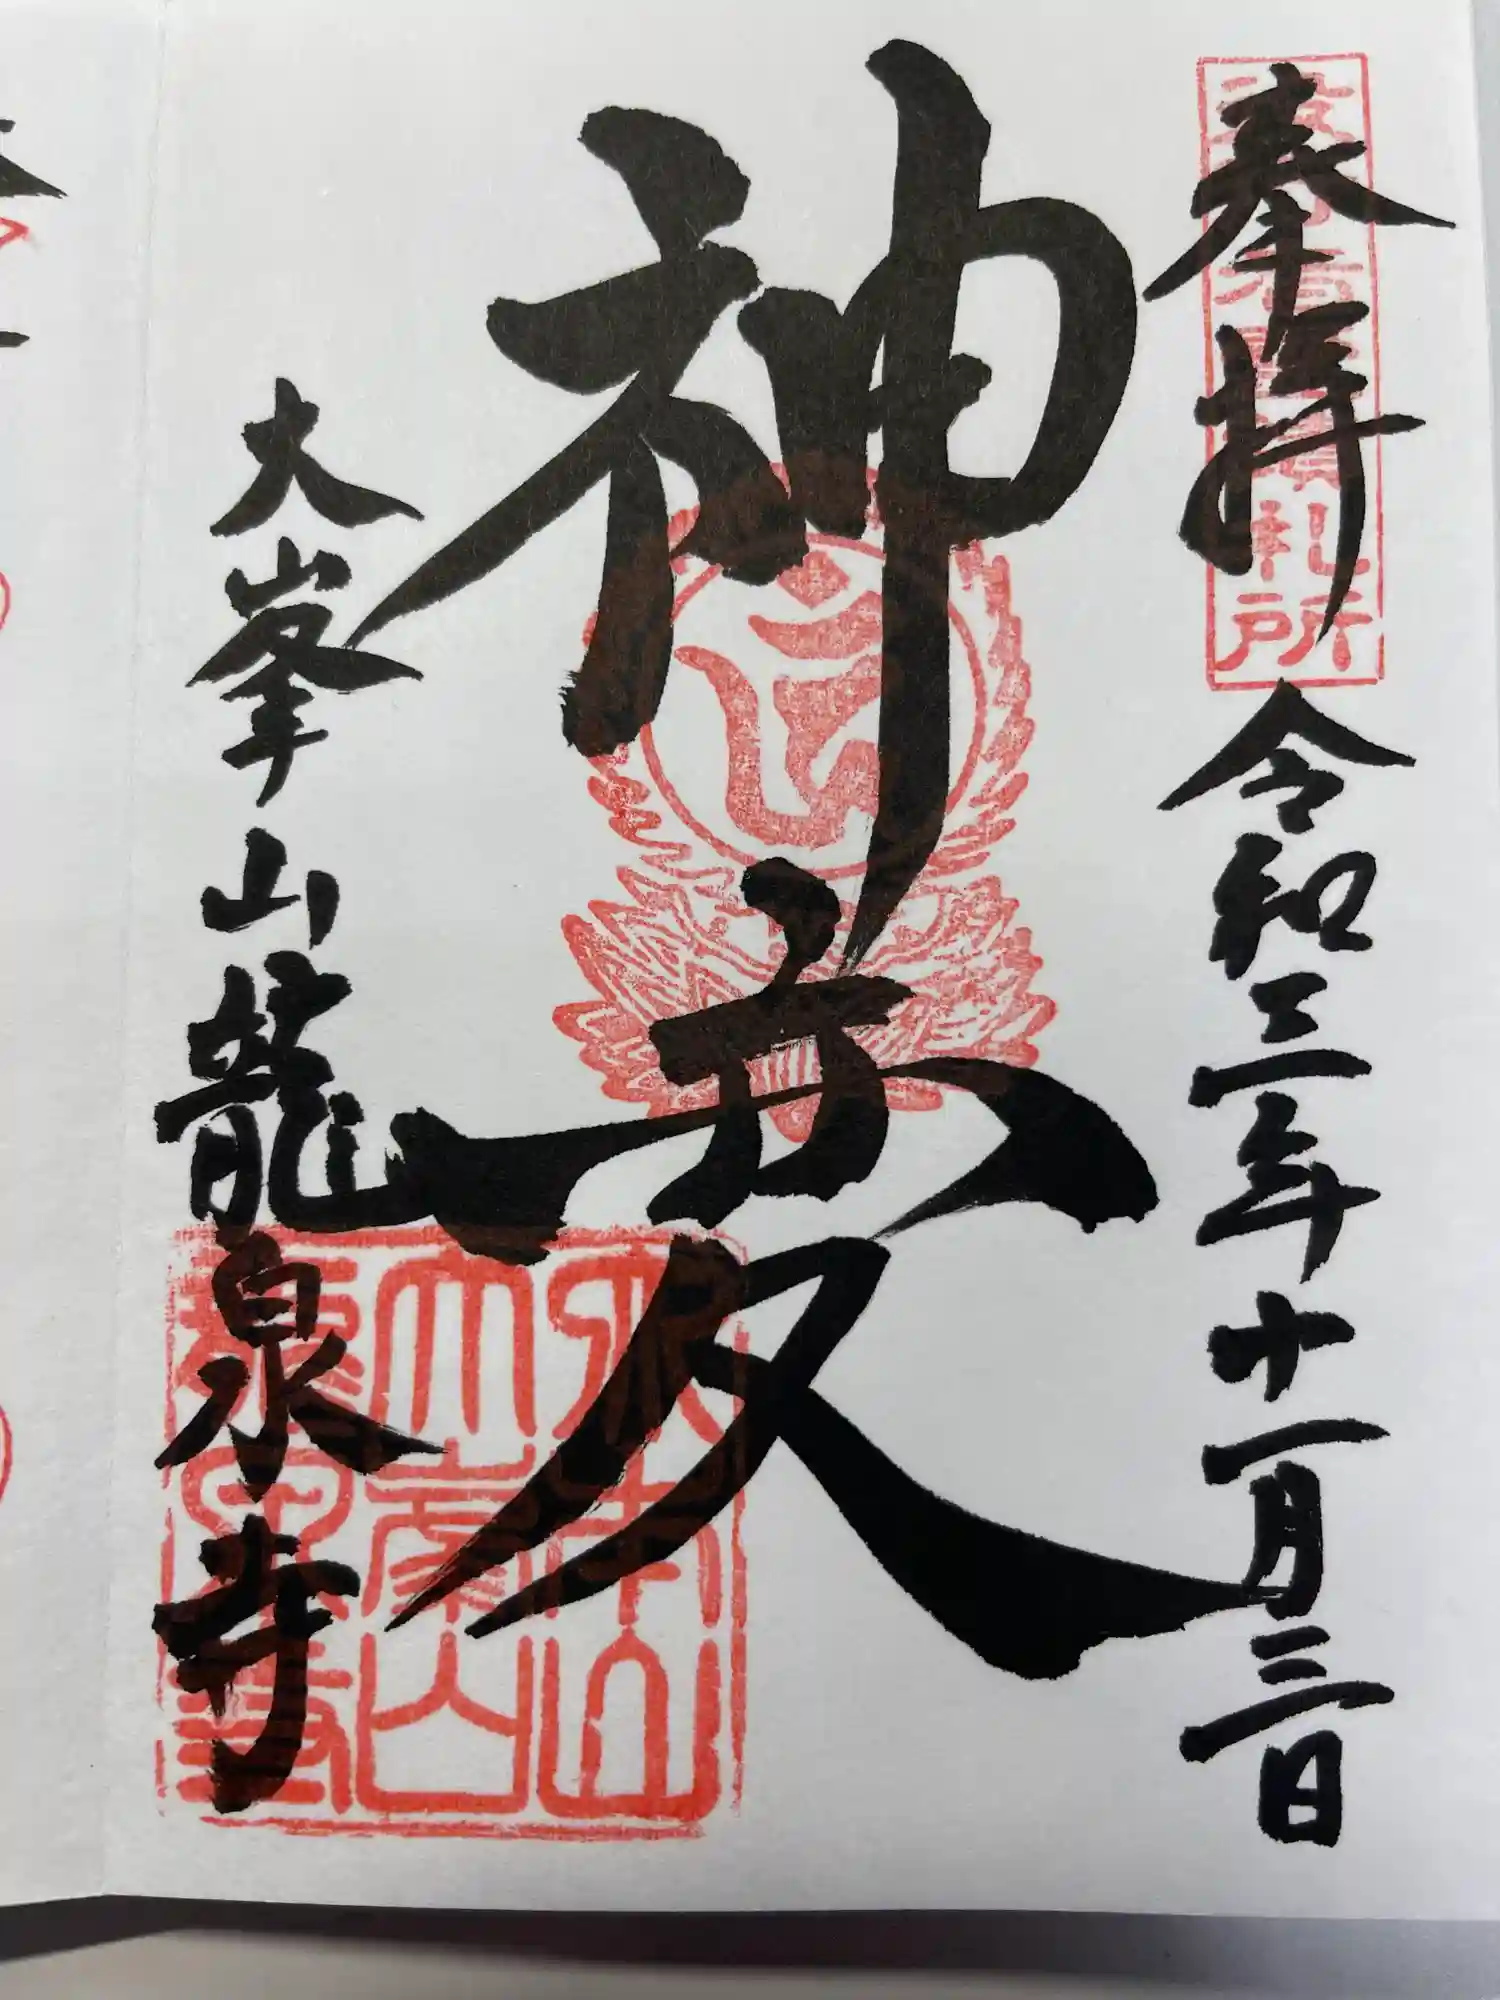 役行者霊蹟札所
奉拝
令和三年十一月三日
神変
大峯山龍泉寺
大峯山
龍泉寺